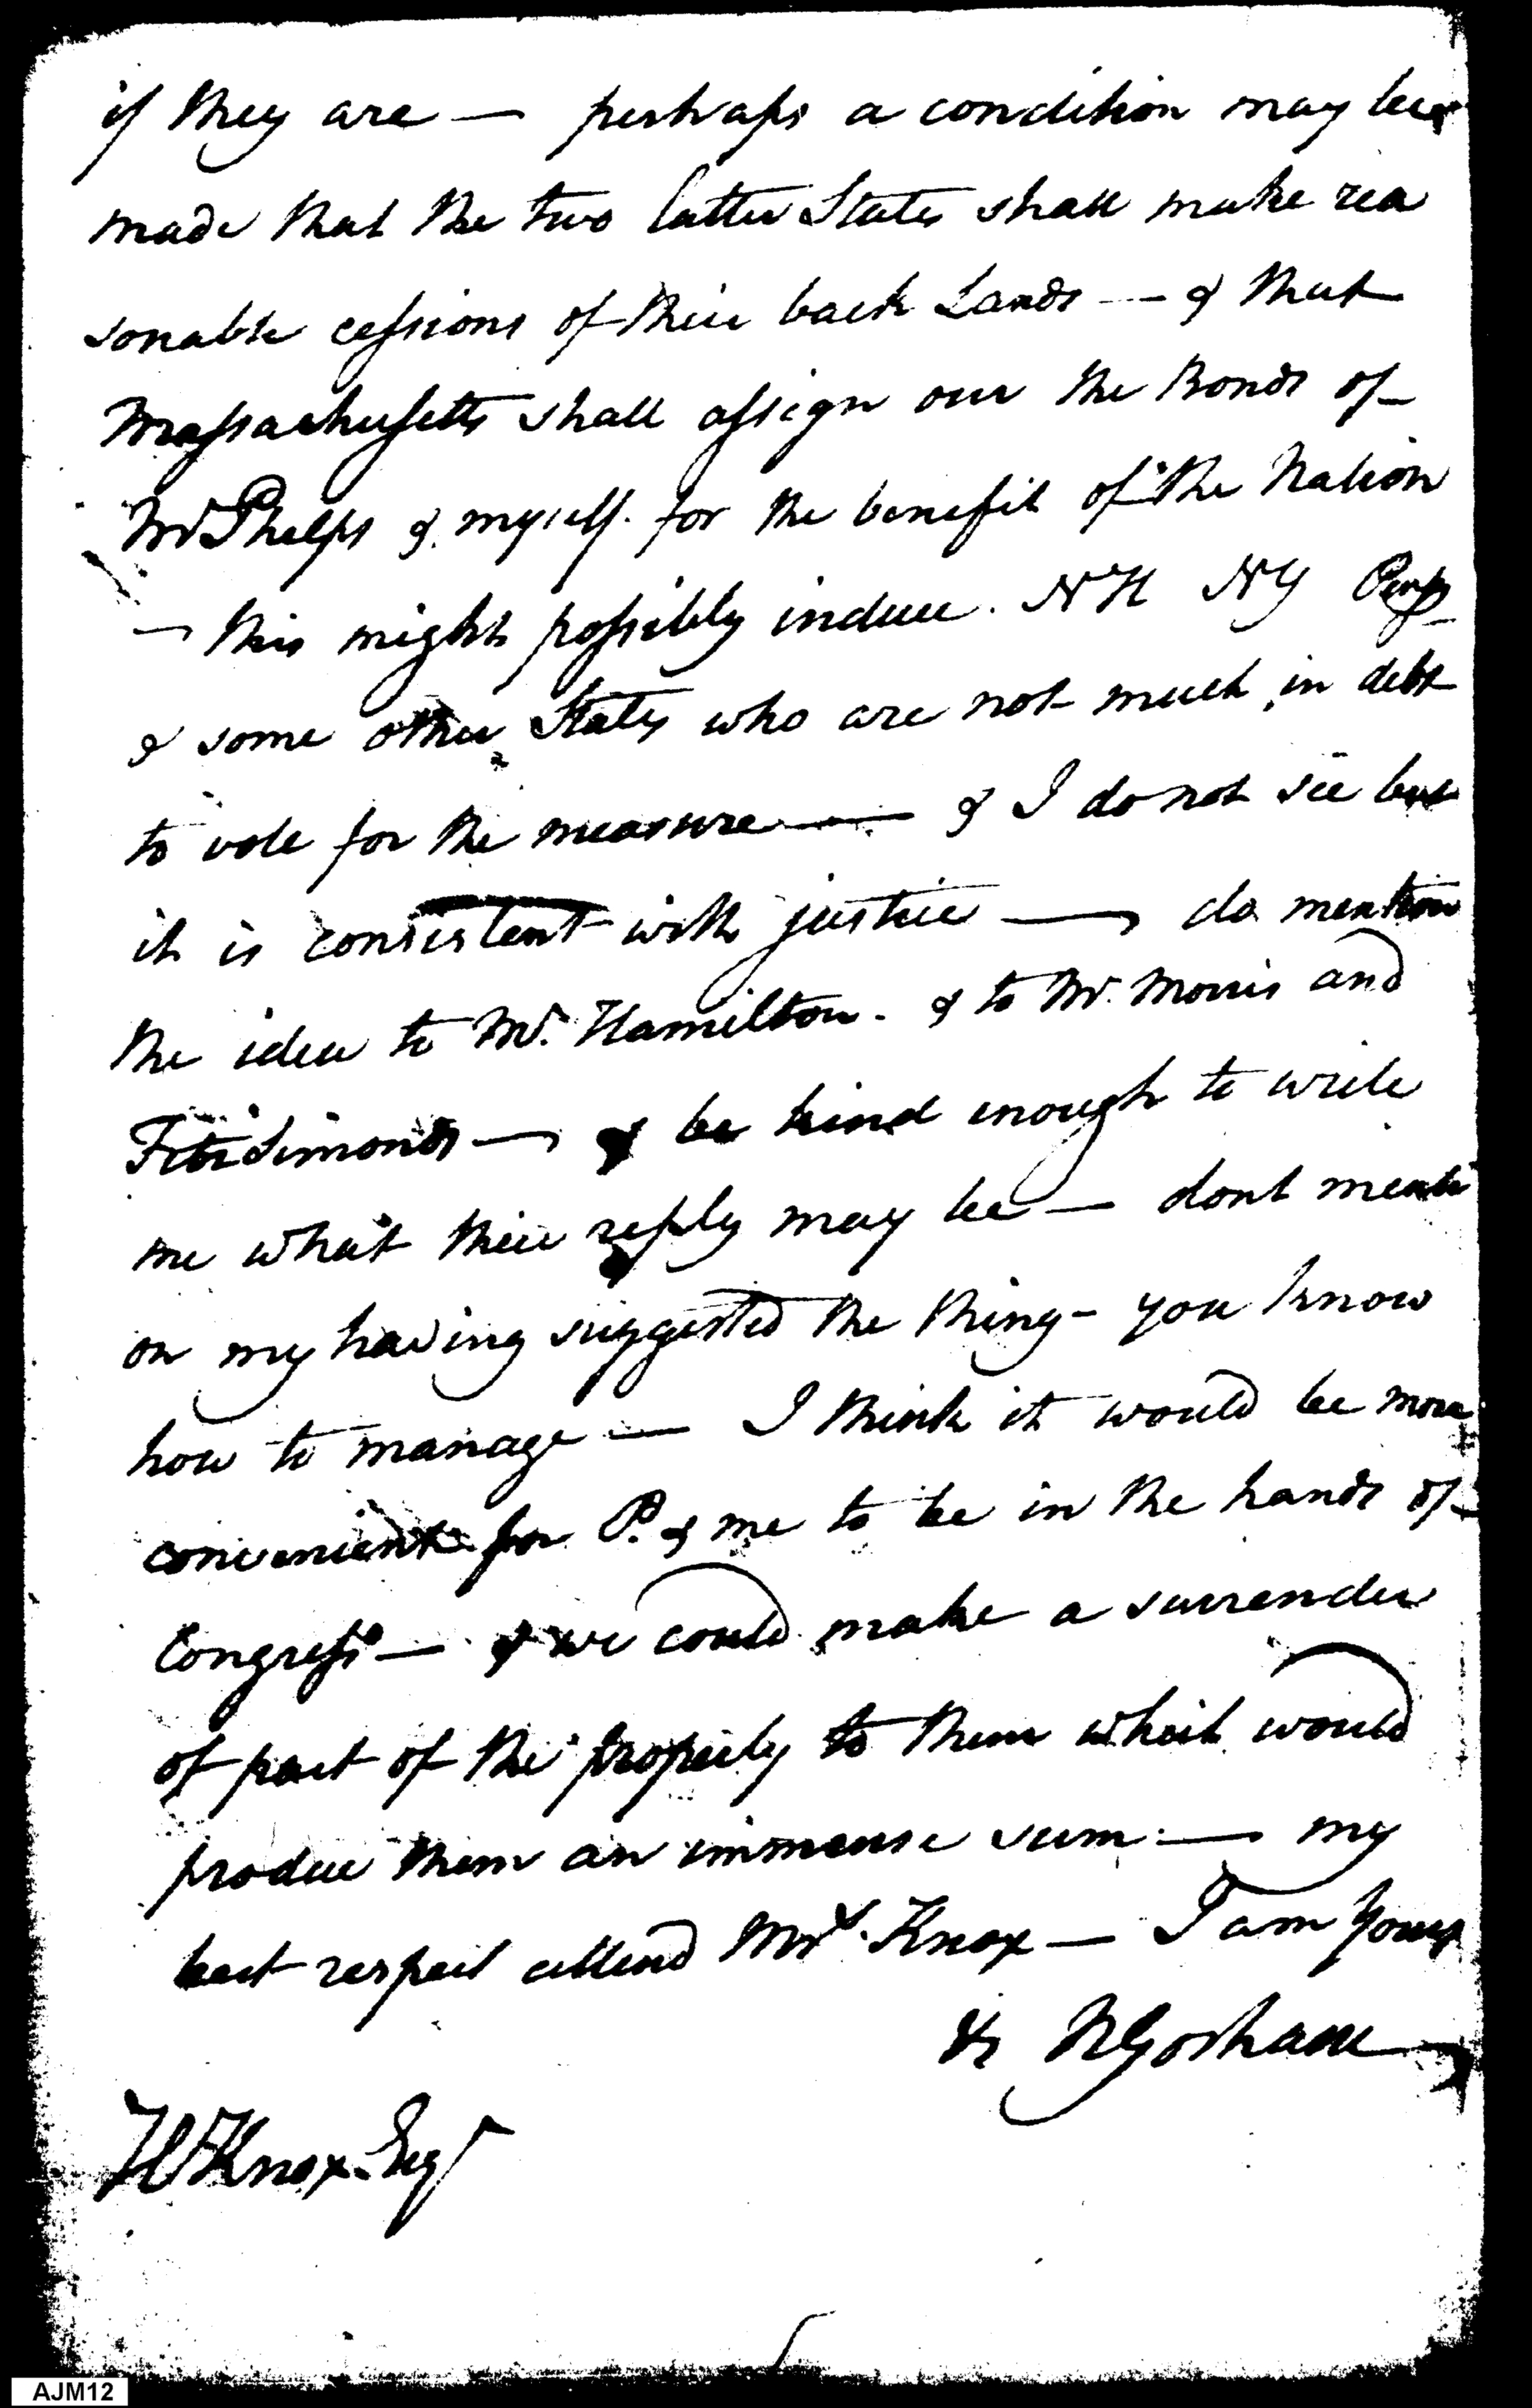 if they are — perhaps a condition may be
made that the two latter States shall make rea
sonable cessions of their back Lands — & that
Massachusetts shall assign over the Bonds of
Mr Phelps & myself for the benefit of the Nation
— this might possibly induce. NH NY
& some other States who are not much in debt
to vote for the measure — & I do not see but
it is consistent with justice — do mention
the idea to Mr. Hamilton. & to Mr. Morris and
Fitzsimons — & be kind enough to write
me what their reply may be — dont menti
on my having suggested the thing - you know
how to manage — I think it would be more
convenient for P. & me to be in the hands of
Congress — & we could make a surrender
of part of the property to them which would
produce them an immense sum — my
best respect attend Mrs. Knox — I am yours
&c NGorham
HKnox Esqr
AJM12